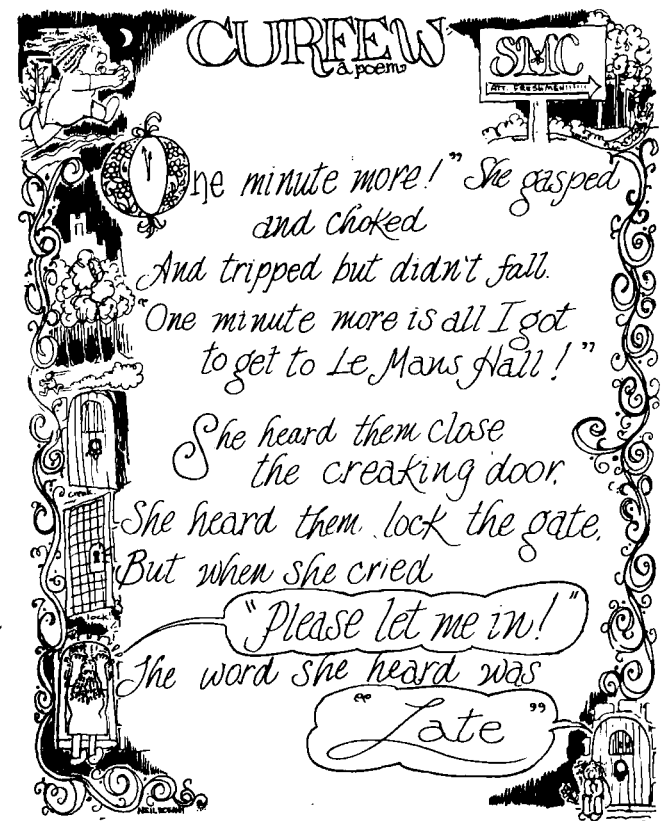 CURFEW
a poem
SMC
ATT. FRESHMEN!!!!!
One minute more!" She gasped
and choked
And tripped but didn't fall.
"One minute more is all I got
to get to Le Mans Hall!"
She heard them close
the creaking door,
She heard them lock the gate,
But when she cried
"Please let me in!"
The word she heard was
"Late"
creak
lock